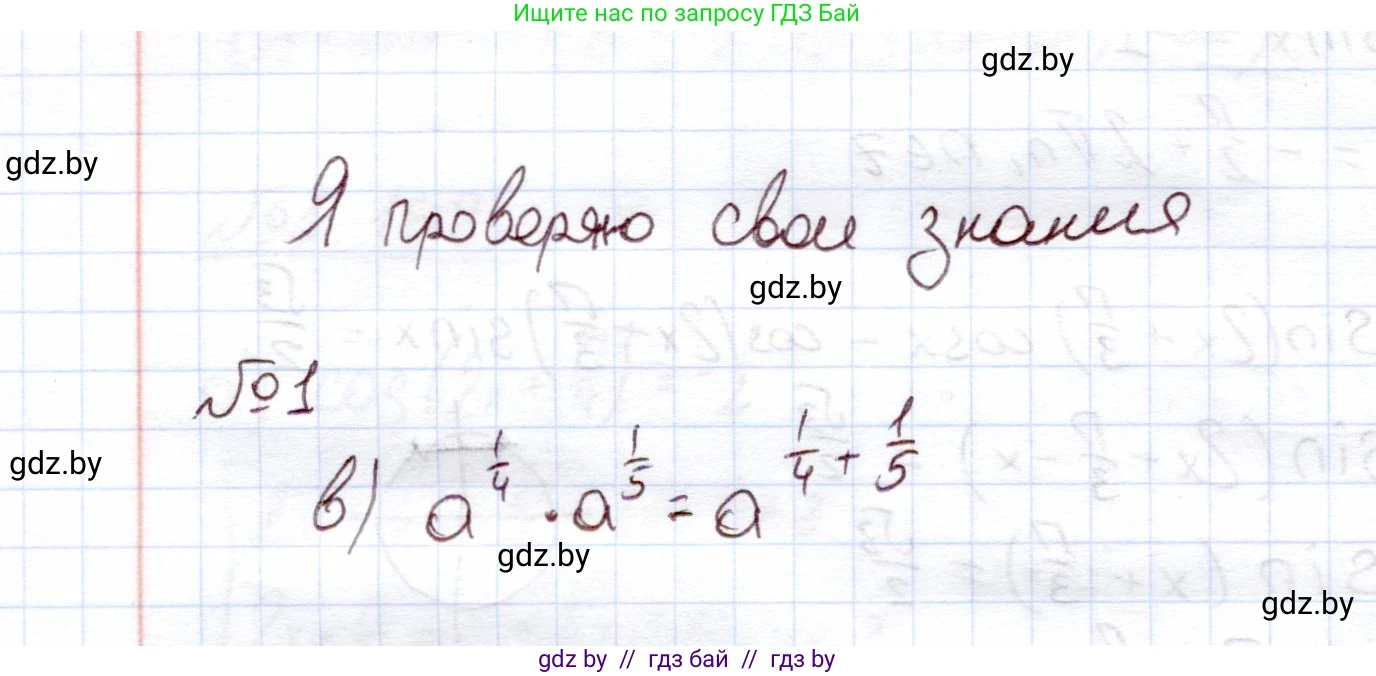 Ищите нас по запросу ГДЗ Бай
gdz.by
gdz.by
Я проверяю свои знания
gdz.by
№1
gdz.by
в) a^{1/4} · a^{1/5} = a^{1/4 + 1/5}
gdz.by
gdz.by
gdz by // гдз бай // гдз by